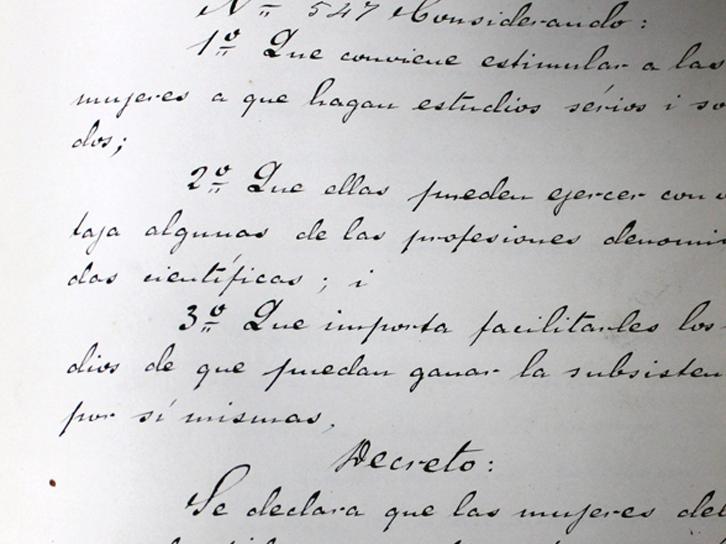 Nº 547 Considerando:
1º Que conviene estimular a las
mujeres a que hagan estudios sérios i so
dos;
2º Que ellas pueden ejercer con v
taja algunas de las profesiones denomin
das científicas; i
3º Que importa facilitarles los
dios de que puedan ganar la subsisten
por sí mismas,
Decreto:
Se declara que las mujeres deb